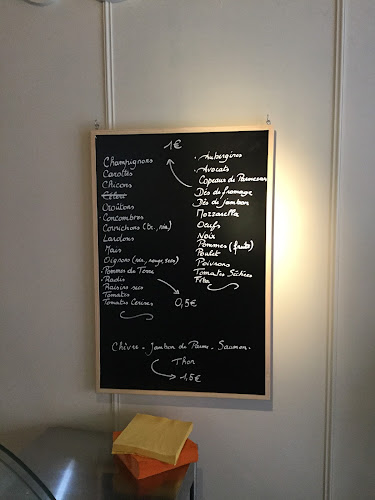 1€
Champignons
Carottes
Chicons
Céleri
Croûtons
Concombres
Cornichons
Lardons
Maïs
Oignons
Pommes de Terre
Radis
Raisins secs
Tomates
Tomates Cerises
0,5€
Aubergines
Avocats
Copeaux de Parmesan
Dés de fromage
Dés de jambon
Mozzarella
Oeufs
Noix
Pommes (fruits)
Poulet
Poivrons
Tomates Séchées
Feta
Chèvre - Jambon de Parme - Saumon -
Thon
1,5€